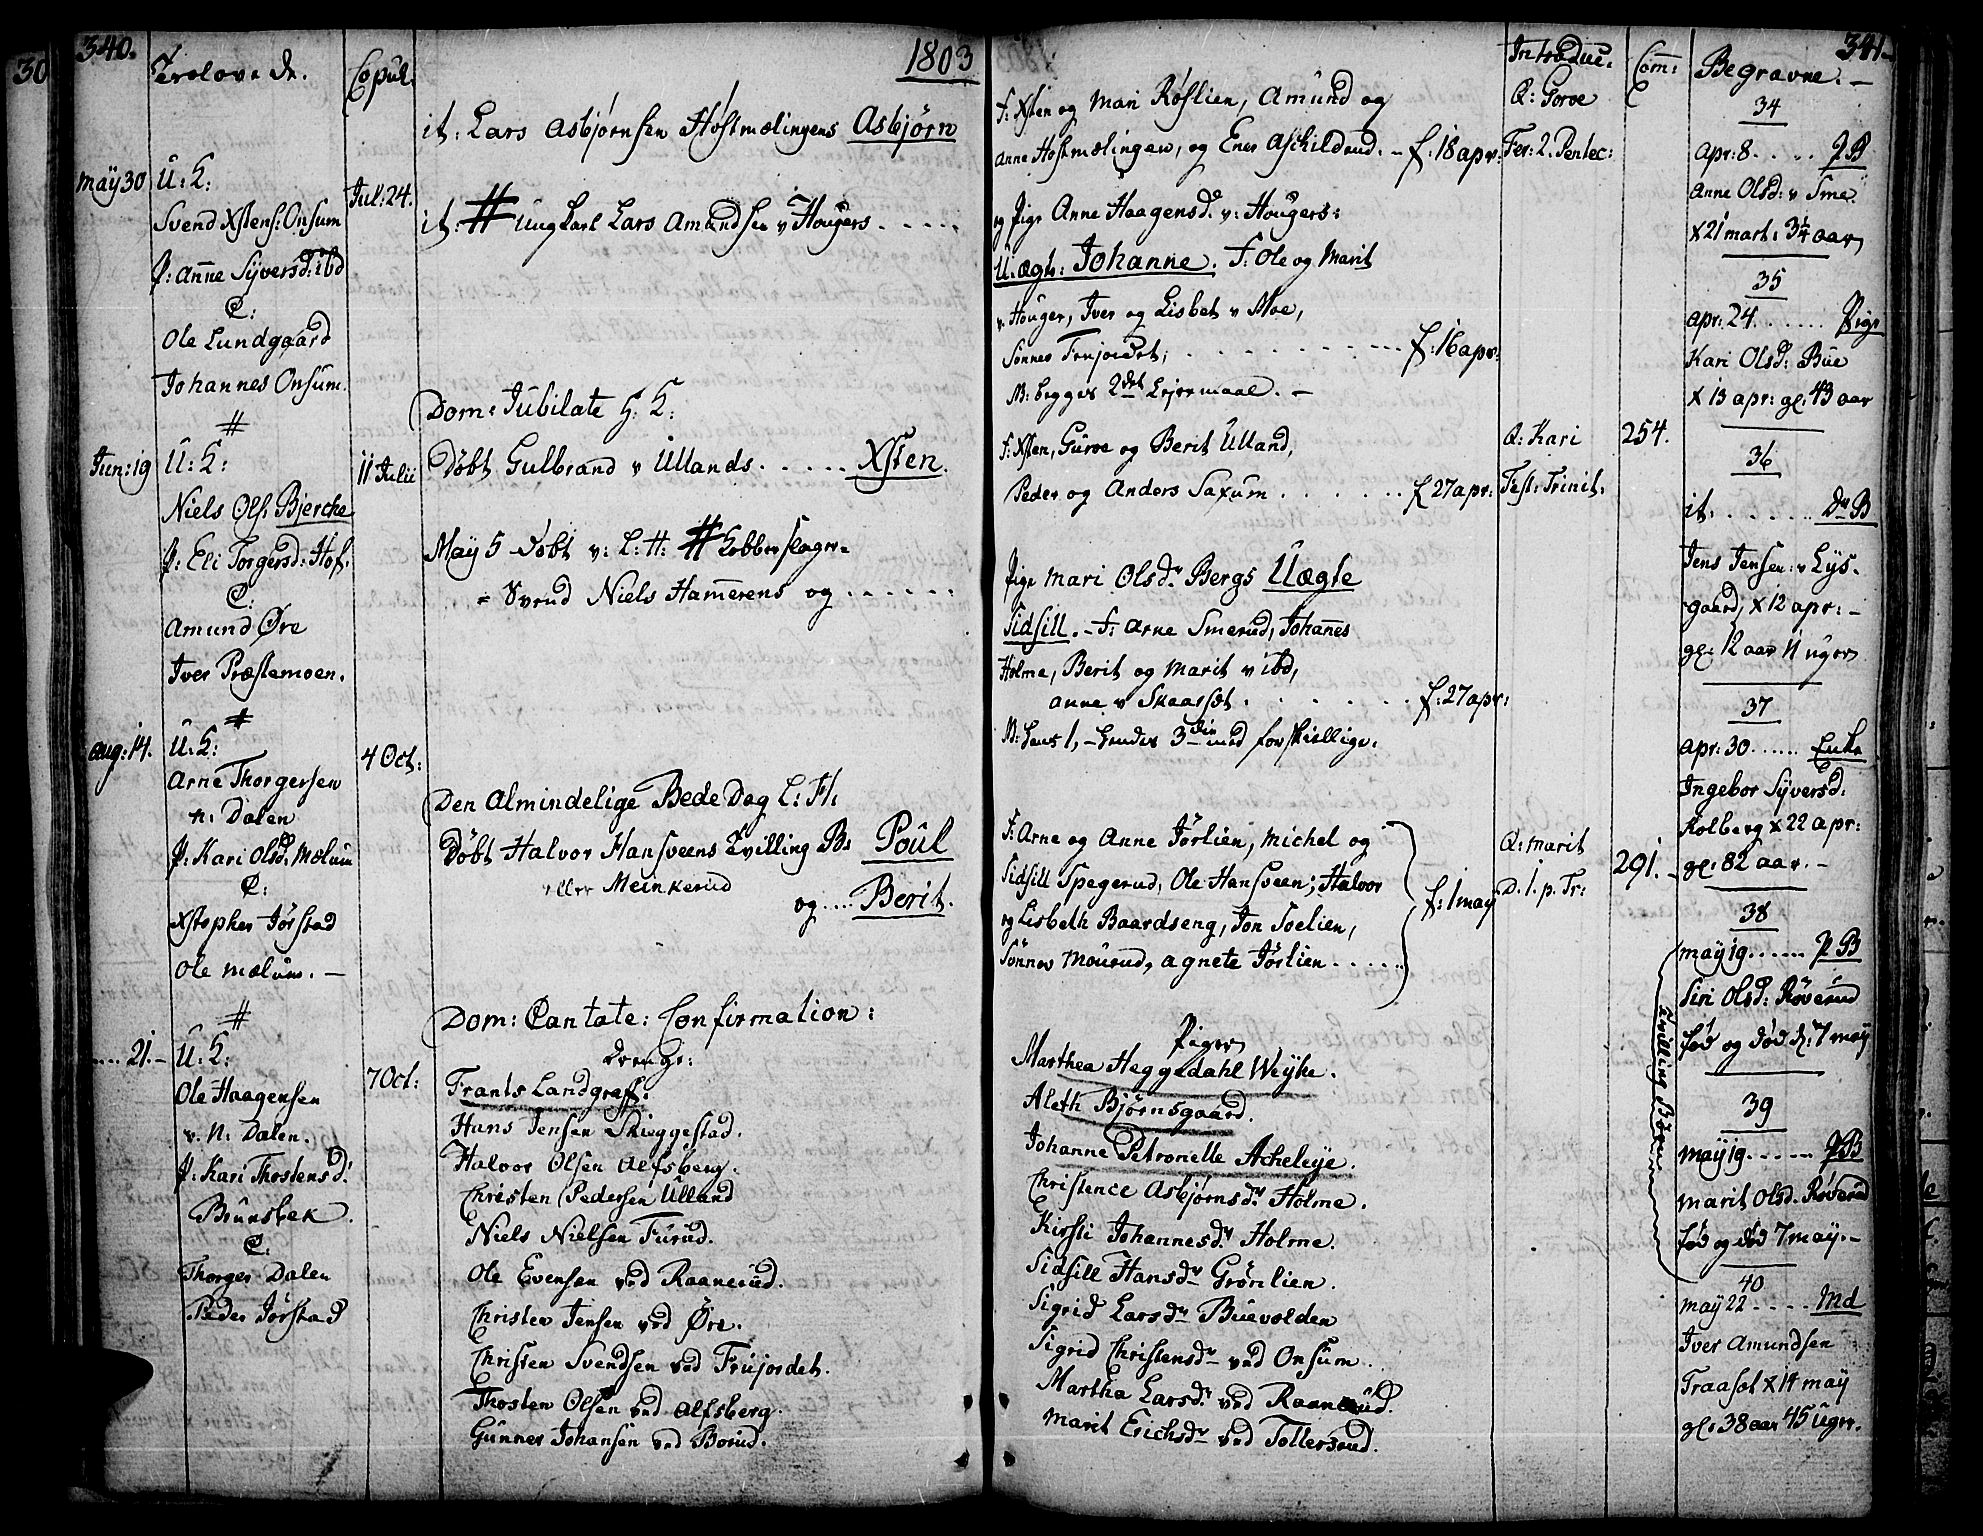 340.
Trolovede.
Copul.
1803
may 30
U: S:
Svend Xstens: Onsum
P: Anne Syversd: ibd
C:
Ole Lundgaard
Johannes Onsum.
#
Jul: 24.
Jun: 19
U: S:
Niels Ols: Bjerche
P: Eli Torgersd: Hof.
C:
Amund Øre
Iver Præstemoen.
#
11 Julii
aug: 14.
U: S:
Arne Thorgersen
n: Dalen
P: Kari Olsd: Mælum
C:
Xstopher Jørstad
Ole Mælum. —
#
4 Oct:
.... 21. —
U: S:
Ole Haagensen
v. N: Dalen.
P: Kari Thostensd:
Brunstek.
C:
Thorger Dalen
Peder Jørstad
7 Oct:
it: Lars Asbjørnsen Hostmælingens Asbjørn
it: # Ungkarl Lars Amundsen v Hougers . . . . .
Dom: Jubilate S: S:
Døbt Gulbrand v Ullands . . . . . Xsten.
May 5 døbt v: L: H: # Kobberslager-
= Svend Niels Hamerens og . . . . . .
Den Almindelige Bede Dag L: H:
Døbt Halvor Hansveens Tvilling B: Poul
eller Meinkerud
og .... Berit.
Dom: Cantate: Confirmation:
Drenge:
Frants Landgraff.
Hans Jensen Skieggestad.
Halvor Olsen Alfsberg.
Christen Pedersen Ulland
Niels Nielsen Furud.
Ole Evensen ved Raanerud.
Christen Jensen ved Øre.
Christen Svendsen ved Frujordet.
Thosten Olsen ved Alfsberg.
Gunner Johansen ved Borud.
341.
Introduc:
Com:
Begravne. —
F: Xsten og Mari Røslien, Amund og
Anne Hostmælingen, og Ener Aschildrud. — f: 18 apr:
Q: Goroe
Fer: 2. Pentec:
og Pige Anne Haagensd: v: Hougers:
U: ægte: Johanne. F: Ole og Marit
v. Houger, Iver og Lisbet v Moe,
Sønnev Frujordet; . . . . . . . . f: 16 apr:
B: begges 2det Lejermaal. —
F: Xsten, Guroe og Berit Ulland,
Peder og Anders Saxum . . . . . . f 27 apr:
Q: Kari
Fest: Trinit:
254.
Pige Mari Olsdr Bergs Uægte
Sidsill. — F: Arne Smerud, Johanes
Holme, Berit og Marit v ibd,
Anne v Skaarset . . . . . . f: 27 apr:
B: hans 1, — hendes 3die med forskiellige.
F: Arne og Anne Jørlien, Michel og
Sidsill Spegerud, Ole Hansveen; Halvor
og Lisbeth Baardseng, Jon Soelien,
Sønnev Mourud, Agnete Jørlien . . . . . .
f: 1 may
Q: Marit
D. 1. p. Tr:
291. —
Piger
Marthea Heggedahl Weyhe.
Aleth Bjørnsgaard.
Johanne Petronelle Acheleye.
Christence Asbjørnsdr Holme.
Kirsti Johannesdr Holme.
Sidsill Hansdr Grønlien.
Sigrid Larsdr Buevolden
Sigrid Christensdr ved Onsum.
Martha Larsdr ved Raanerud.
Marit Erichsdr ved Tollersrud.
34
Apr: 8. . . . . PB
Anne Olsd: v Sme
X 21 mart: 3¼ aar
35
apr: 24. . . . . . Pige
Kari Olsd: Bue
X 13 apr: gl: 43 aar
36
it: . . . . . . Dr B
Jens Jensen: v Lys-
gaard, X 12 apr: —
gl: 12 aar 11 uger
37
apr: 30. . . . . . Enke
Ingebor Syversd:
Kolberg X 22 apr:
gl: 82 aar. —
38
may 19. . . . . . PB
Siri Olsd: Røverud
fød og død d: 7 may
39
may 19. . . . . . PB
Marit Olsd: Røverud
fød og død 7 may. —
Tvilling Børn
40
may 22 . . . . . Md
Iver Amundsen
Traaset X 14 may
gl: 38 aar 45 uger.